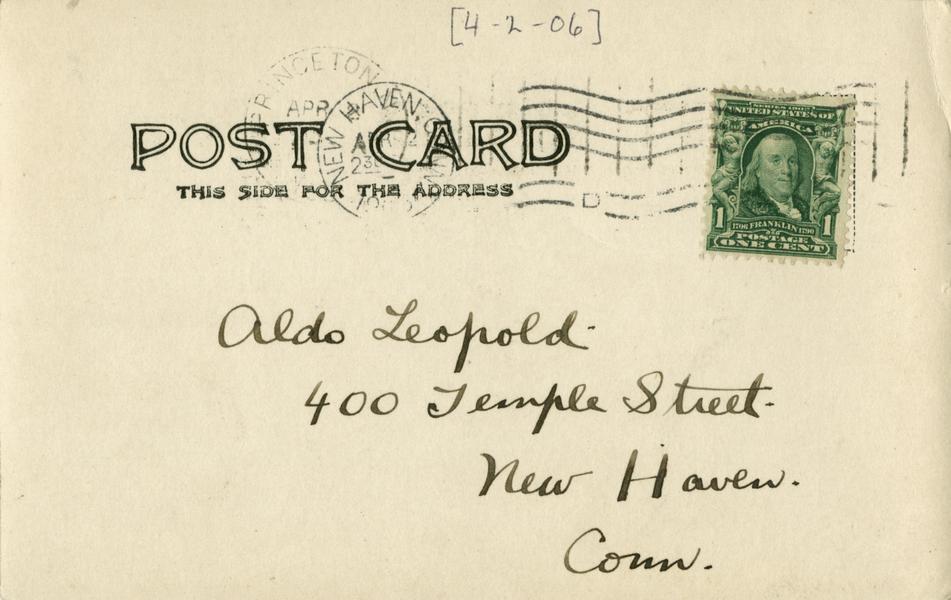 [4-2-06]
PRINCETON
APR
NEW HAVEN, CONN
POST CARD
THIS SIDE FOR THE ADDRESS
D
SERIES 1902
UNITED STATES OF
AMERICA
1 1706 FRANKLIN 1790 1
POSTAGE
ONE CENT
Aldo Leopold
400 Temple Street.
New Haven.
Conn.